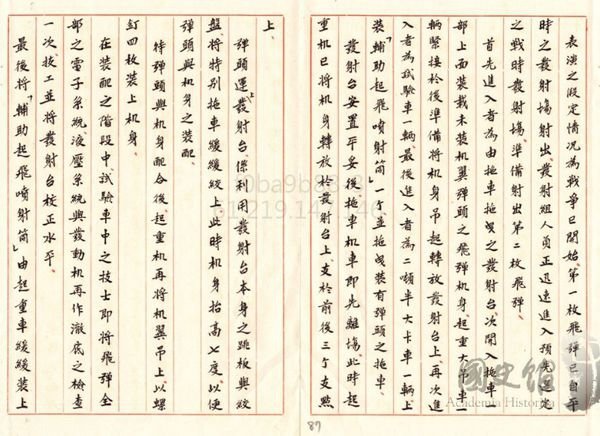 表演之假定情況為戰爭已開始,第一枚飛彈已自平
時之發射場射出發射組人員正迅速進入預先選定
之戰時發射場準備射出第二枚飛彈
首先進入者為由拖車拖曳之發射台次開入拖車一
部上面裝載未裝机翼彈頭之飛彈机身起重大卡車一
輛緊接於後準備將机身吊起轉放發射台上,再次進
入者為試驗車一輛最後進入者為二噸半大卡車一輛上
裝「輔助起飛噴射筒」一个並拖曳裝有彈頭之拖車
發射台安置平妥後拖車机車即先離場此時起
重机已將机身轉放於發射台上支於前後三个支點
上
彈頭運上發射台係利用發射台本身之跳板與絞
盤將特別拖車緩緩絞上此時机身抬高七度以便
彈頭與机身之裝配
待彈頭與机身配合後起重机再將机翼吊上以螺
釘四枚裝上机身
在裝配之階段中試驗車中之技士即將飛彈全
部之電子系統液壓系統與發動机再作澈底之檢查
一次技工並將發射台校正水平
最後將「輔助起飛噴射筒」由起重車緩緩裝上
87
國史館
Academia Historica